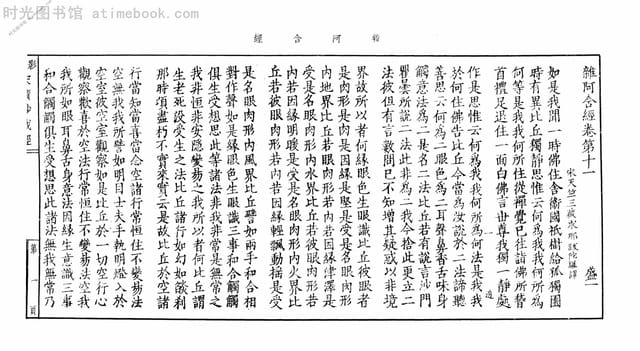 时光图书馆 - atimebook.com
雜阿含經
雜阿含經卷第十一 盛一
宋天竺三藏求那跋陀羅譯
如是我聞一時佛住舍衛國祇樹給孤獨園
時有異比丘獨靜思惟云何為我我何所為
何等是我我何所住從禪覺已往詣佛所稽
首禮足退住一面白佛言世尊我獨一靜處
作是思惟云何為我我何所為何法是我我
於何住佛告比丘今當為汝說於二法諦聽
善思云何為二眼色為二耳聲鼻香舌味身
觸意法為二是名二法比丘若有說言沙門
瞿曇所說二法此非為二我今捨此更立二
法彼但有言數問已不知增其疑惑以非境
界故所以者何緣眼色生眼識比丘彼眼者
是肉形是內是因緣是堅是受是名眼肉形
內地界比丘若眼肉形若內若因緣津澤是
受是名眼肉形內水界比丘若彼眼肉形若
內若因緣明暖是受是名眼肉形內火界比
丘若彼眼肉形若內若因緣輕飄動搖是受
是名眼肉形內風界比丘譬如兩手和合相
對作聲如是緣眼色生眼識三事和合觸觸
俱生受想思此等諸法非我非常是無常之
我非恒非安隱變易之我所以者何比丘謂
生老死沒受生之法比丘諸行如幻如燄剎
那時頃盡朽不實來實去是故比丘於空諸
行當知當喜當念空諸行常恒住不變易法
空無我我所譬如明目士夫手執明燈入於
空室彼空室觀察如是比丘於一切空行空心
觀察歡喜於空法行常恒住不變易法空我
我所如眼耳鼻舌身意法因緣生意識三事
和合觸觸俱生受想思此諸法無我無常乃
第一頁